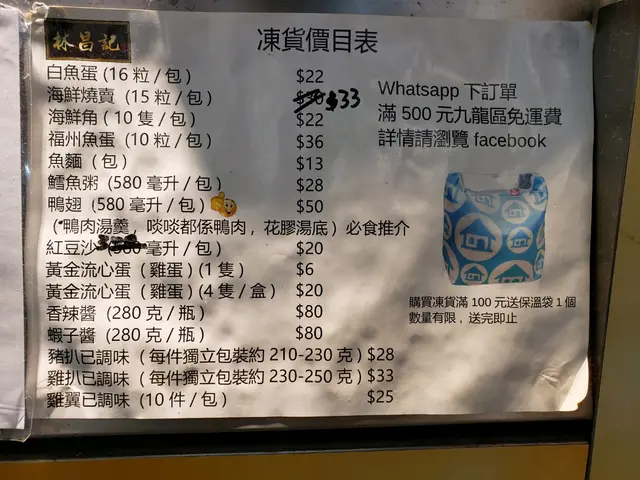 林昌記
凍貨價目表
白魚蛋 (16 粒 / 包) $22
海鮮燒賣 (15 粒 / 包) $33
海鮮角 ( 10 隻 / 包) $22
福州魚蛋 (10 粒 / 包) $36
魚麵 ( 包 ) $13
鱈魚粥 (580 毫升 / 包 ) $28
鴨翅 (580 毫升 / 包 ) $50
( 鴨肉湯羹 , 啖啖都係鴨肉 , 花膠湯底 ) 必食推介
紅豆沙 毫升 / 包 ) $20
黃金流心蛋 ( 雞蛋 ) (1 隻 ) $6
黃金流心蛋 ( 雞蛋 ) (4 隻 / 盒 ) $20
香辣醬 (280 克 / 瓶 ) $80
蝦子醬 (280 克 / 瓶 ) $80
豬扒已調味 ( 每件獨立包裝約 210-230 克 ) $28
雞扒已調味 ( 每件獨立包裝約 230-250 克 ) $33
雞翼已調味 (10 件 / 包 ) $25
Whatsapp 下訂單
滿 500 元九龍區免運費
詳情請瀏覽 facebook
購買凍貨滿 100 元送保溫袋 1 個
數量有限 , 送完即止